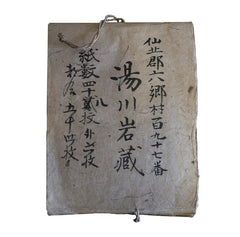 仙北郡六郷村百九十七番
湯川岩蔵
紙数四十貳枚外六枚
八
五十四枚